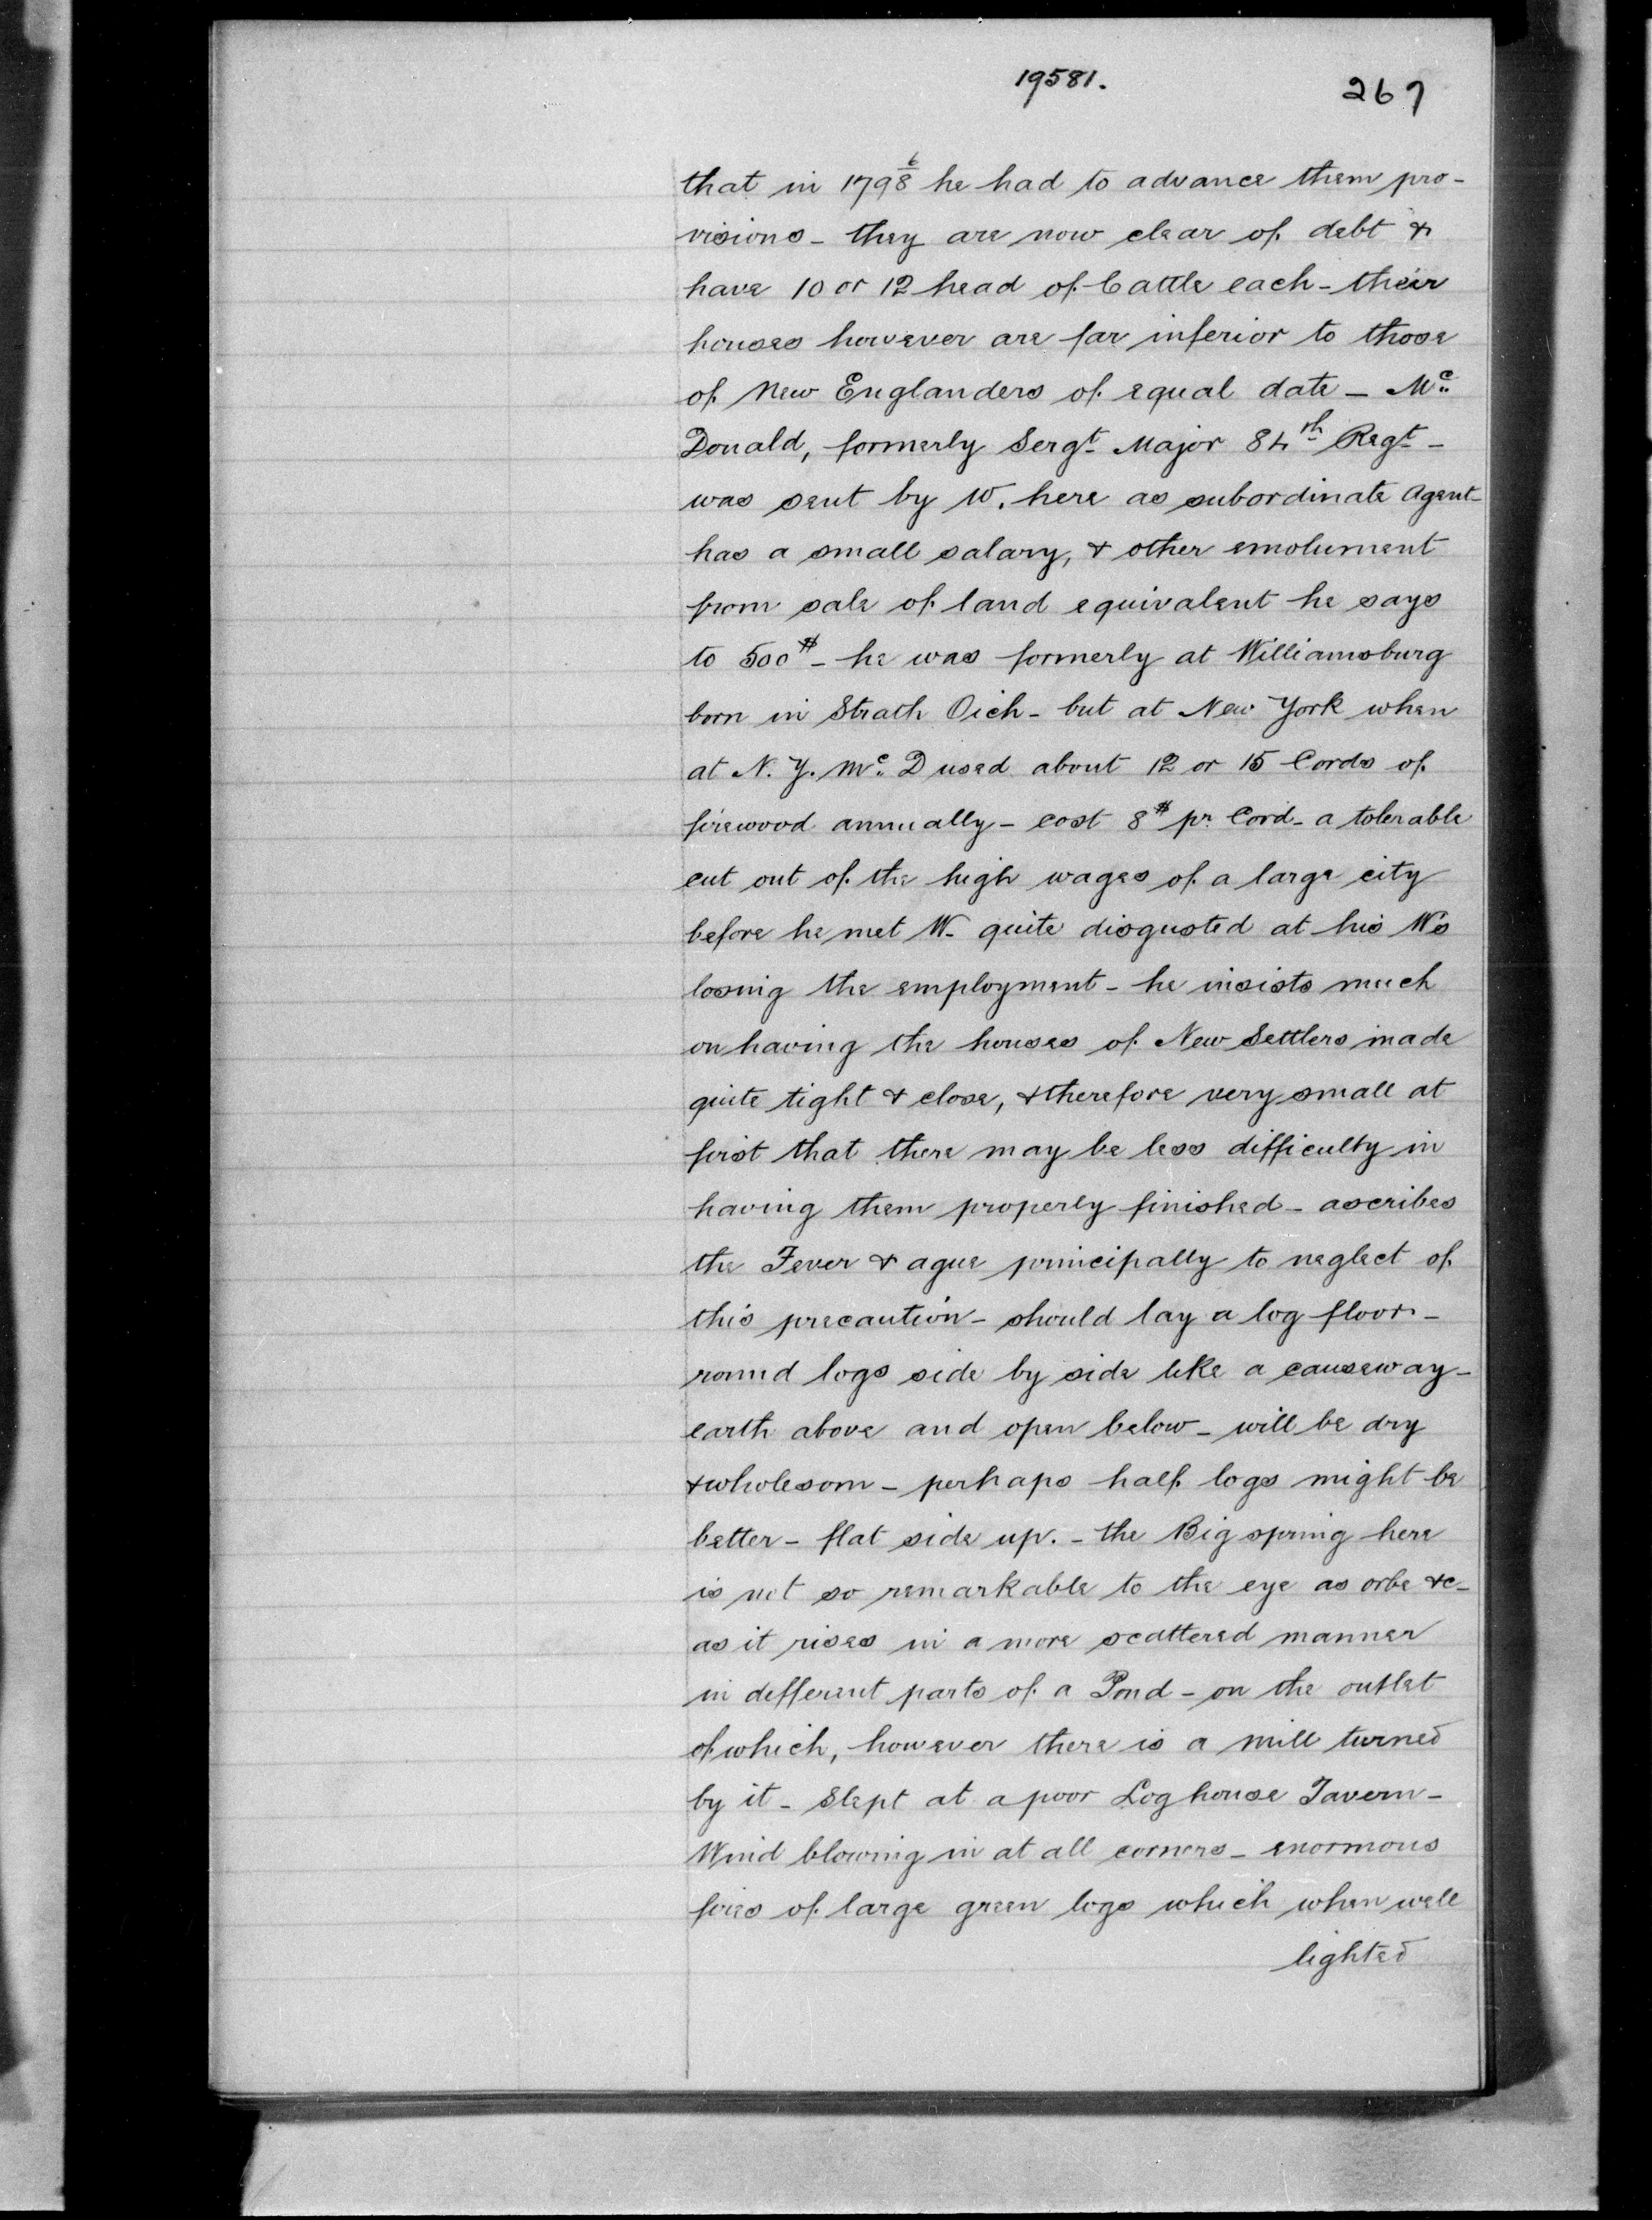 19581.
267
that in 1798 6 he had to advance them pro-
visions - they are now clear of debt &
have 10 or 12 head of Cattle each - their
houses however are far inferior to those
of New Englanders of equal date - Mc
Donald, formerly Sergt Major 84th Regt -
was sent by W. here as subordinate Agent -
has a small salary, & other emolument
from sale of land equivalent he says
to 500$ - he was formerly at Williamsburg
born in Strath Oich - but at New York when
at N.Y. Mc. D used about 12 or 15 Cords of
firewood annually - cost 8$ pr Cord - a tolerable
cut out of the high wages of a large city
before he met W - quite disgusted at his W's
losing the employment - he insists much
on having the houses of New Settlers made
quite tight & close, & therefore very small at
first that there may be less difficulty in
having them properly finished - ascribes
the Fever & ague principally to neglect of
this precaution - should lay a log floor -
round logs side by side like a causeway -
earth above and open below - will be dry
& wholesom - perhaps half logs might be
better - flat side up. - the Big spring here
is not so remarkable to the eye as orbe &c -
as it rises in a more scattered manner
in defferent parts of a Pond - on the outlet
of which, however there is a mill turned
by it - Slept at a poor Log house Tavern -
Wind blowing in at all corners - enormous
fires of large green logs which when well
lighted